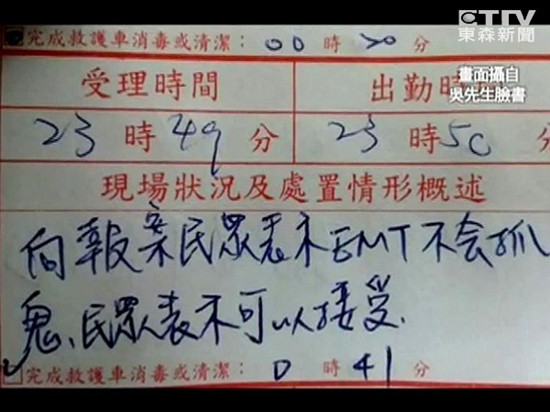 CTTV
東森新聞
畫面攝自
吳先生臉書
完成救護車消毒或清潔：00時20分
受理時間 出勤時
23時49分 23時50分
現場狀況及處置情形概述
向報案民眾表示EMT不会抓
鬼、民眾表示可以接受.
完成救護車消毒或清潔：0時41分